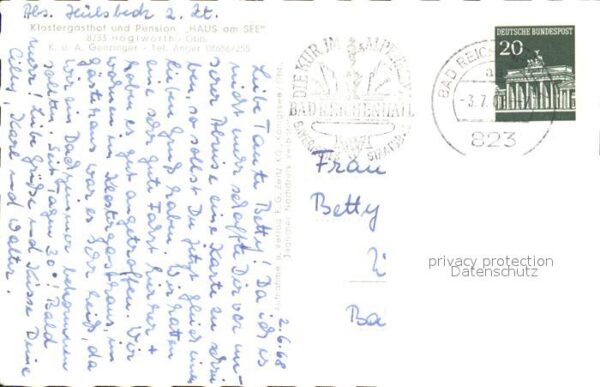 Abs. z. Zt.
Klostergasthof und Pension "HAUS am SEE"
8/33 Höglwörth - Obb.
K. u. A. Genzinger - Tel. Anger 08656/255
2.6.68
Liebe Tante Betty! Da ich es
nicht mehr schaffte Dir vor un-
serer Abreise eine Karte zu schrei
ben, so sollst Du jetzt gleich einen
lieben Gruß haben. Wir hatten
eine sehr gute Fahrt hierher +
haben es gut angetroffen. Wir
wohnen im Klostergasthaus, im
gästehaus war es sehr heiß, da
wir ein Dachzimmer bekommen
sollten. Seit Tagen 30°! Bald
mehr! Liebe Grüße und Küsse Deine
Cilly, Karl und Walter.
Aufnahme u. Verlag F. G. Zeitz KG., Königssee/Obb.
Jeglicher Nachdruck verboten
DIE KUR IM ALPEN
BAD REICHENHALL
BAD REICH
-3.7.
823
DEUTSCHE BUNDESPOST
20
Frau
Betty
Ba
privacy protection
Datenschutz